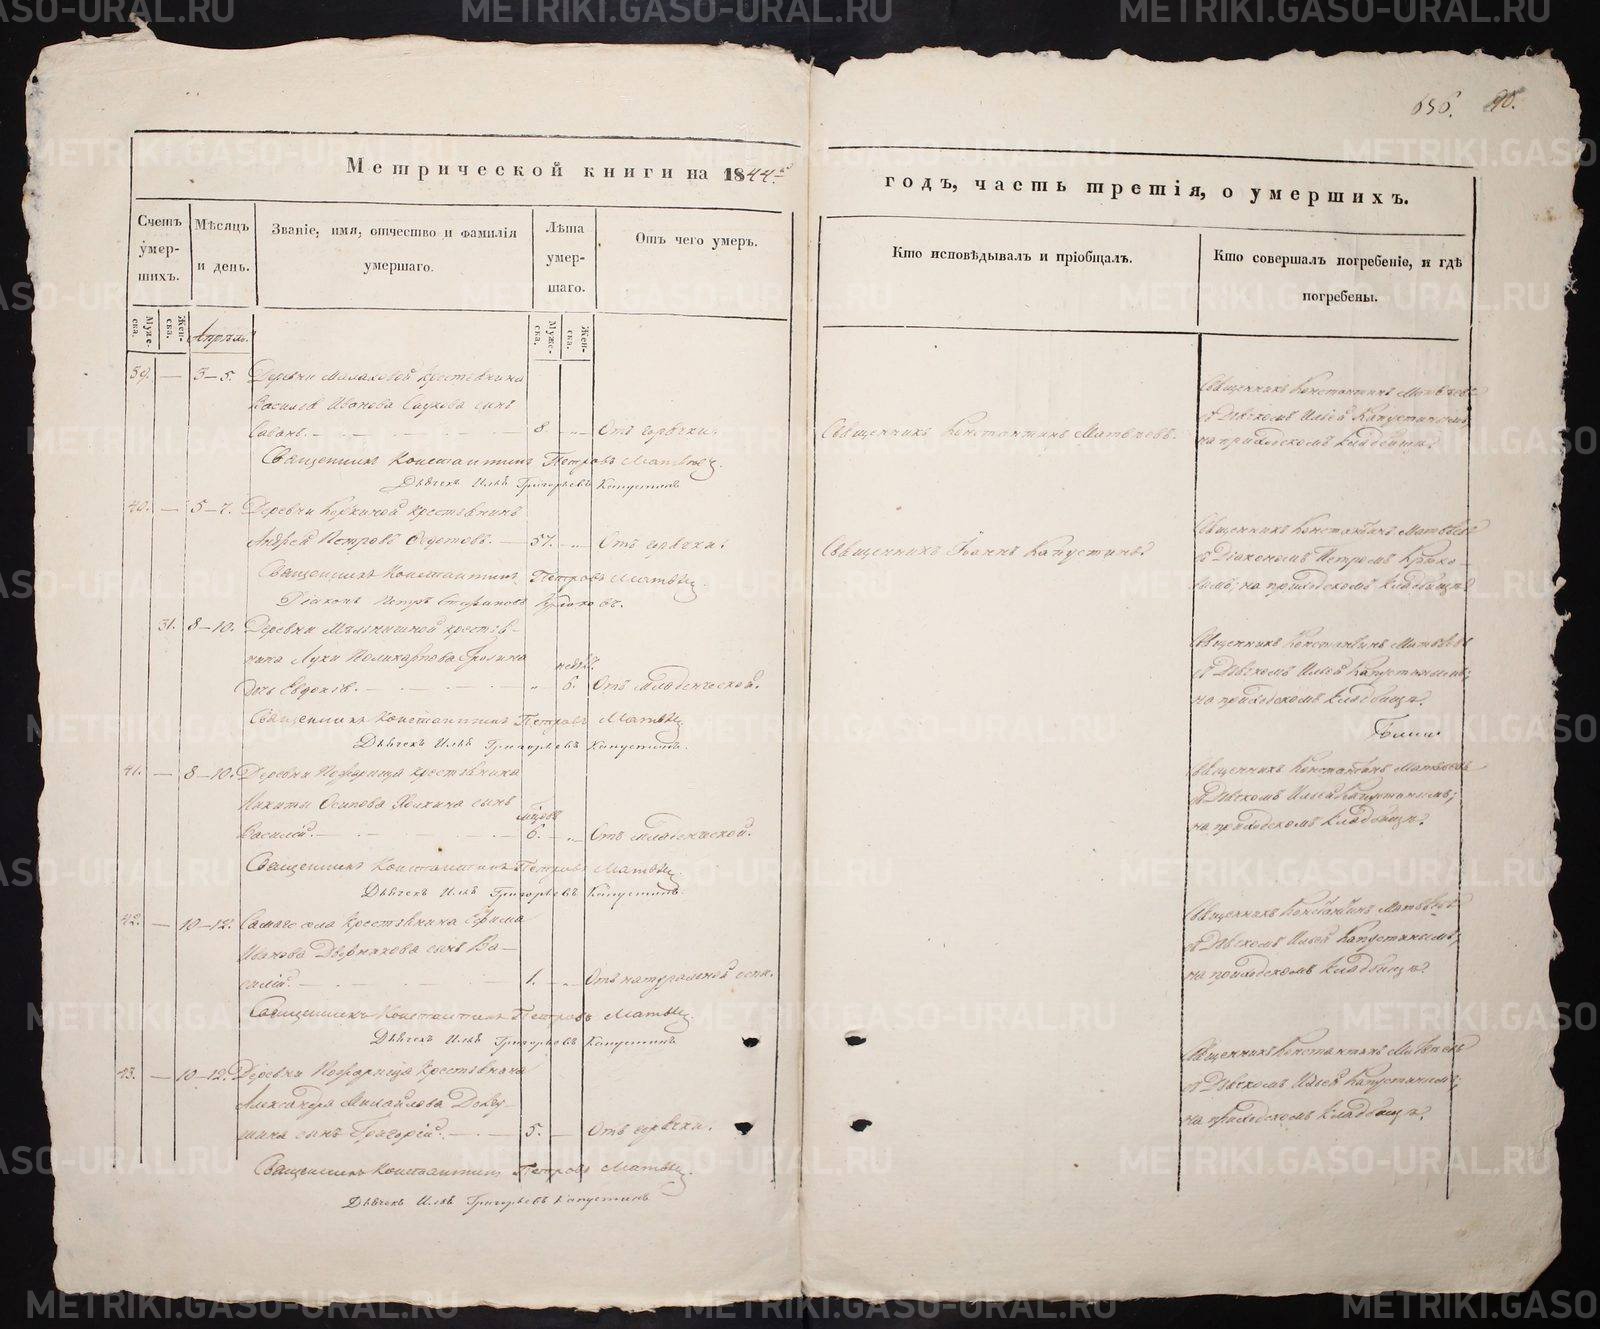 656. 90.
Метрической книги на 1844й
годъ, часть третія, о умершихъ.
Счетъ умер-шихъ.
Мѣсяцъ и день.
Званіе, имя, отчество и фамилія умершаго.
Лѣта умер-шаго.
Отъ чего умер.
Кто исповѣдывалъ и пріобщалъ.
Кто совершалъ погребеніе, и гдѣ погребены.
Муже-ска.
Жен-ска.
Апрѣль.
Муже-ска.
Жен-ска.
39. — 3–5. Деревни Малаховой крестьянина
Василья Иванова сынъ
8 Отъ горячки.
Священникъ Константинъ Матвѣевъ.
Священникъ Константинъ Матвѣевъ
съ Дьячкомъ Ильей Капустинымъ,
на приходскомъ кладбищѣ.
Священникъ Константинъ Петровъ Матвѣевъ.
Дьячекъ Илья Григорьевъ Капустинъ
40. — 5–7. Деревни крестьянинъ
Андрей Петровъ 57. Отъ горячки.
Священникъ Іоаннъ Капустинъ.
Священникъ Константинъ Матвѣевъ
съ Діакономъ Петромъ Крюко-
вымъ, на приходскомъ кладбищѣ.
Священникъ Константинъ Петровъ Матвѣевъ.
Діаконъ Петръ Стефановъ Крюковъ.
31. 8–10. Деревни Мѣльнишной крестья-
нина Луки Поликарпова
дочь Евдокія. недѣл. 6. Отъ младенческой.
Священникъ Константинъ Матвѣевъ
съ Дьячкомъ Ильей Капустинымъ,
на приходскомъ кладбищѣ.
Священникъ Константинъ Петровъ Матвѣевъ
Дьячекъ Илья Григорьевъ Капустинъ.
41. — 8–10. Деревни Пожарища крестьянина
Никиты Осипова сынъ
Василій. мѣсяц. 6. Отъ младенческой.
Священникъ Константинъ Матвѣевъ
съ Дьячкомъ Ильей Капустинымъ,
на приходскомъ кладбищѣ.
Священникъ Константинъ Петровъ Матвѣевъ.
Дьячекъ Илья Григорьевъ Капустинъ.
42. — 10–12. Самаго села крестьянина Ефима
Иванова Дверникова сынъ Ва-
силій. 1. Отъ натуральной оспы.
Священникъ Константинъ Матвѣевъ
съ Дьячкомъ Ильей Капустинымъ,
на приходскомъ кладбищѣ.
Священникъ Константинъ Петровъ Матвѣевъ.
Дьячекъ Илья Григорьевъ Капустинъ
43. — 10–12. Деревни Пожарища крестьянина
Александра Михайлова
сынъ Григорій. 5. Отъ горячки.
Священникъ Константинъ Матвѣевъ
съ Дьячкомъ Ильей Капустинымъ,
на приходскомъ кладбищѣ.
Священникъ Константинъ Петровъ Матвѣевъ.
Дьячекъ Илья Григорьевъ Капустинъ
METRIKI.GASO-URAL.RU